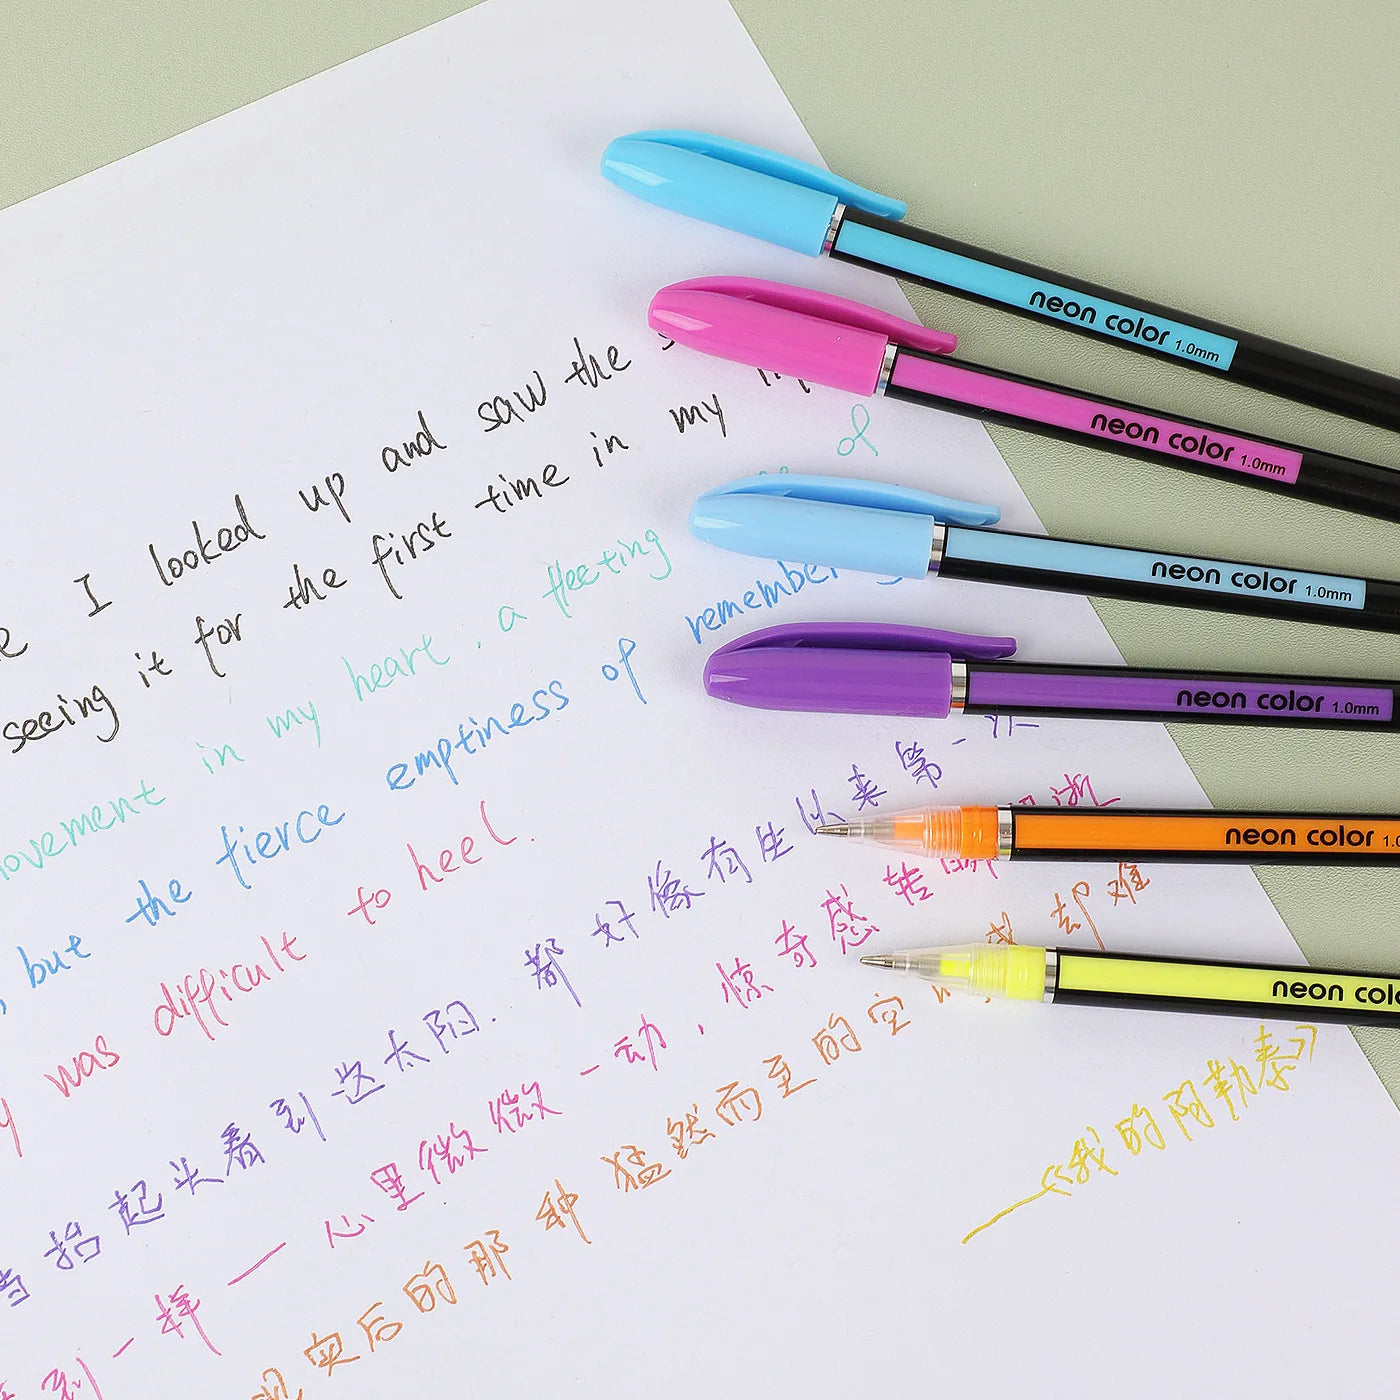 I looked up and saw the
seeing it for the first time in my
movement in my heart, a fleeting of
, but the fierce emptiness of remember
was difficult to heel.
当抬起头看到这太阳.都好像有生以来第一次
看到一样一心里微微一动,惊奇感转瞬即逝
现实后的那种猛然而至的空 我却难
—《我的阿勒泰》
neon color 1.0mm
neon color 1.0mm
neon color 1.0mm
neon color 1.0mm
neon color 1.0
neon colo